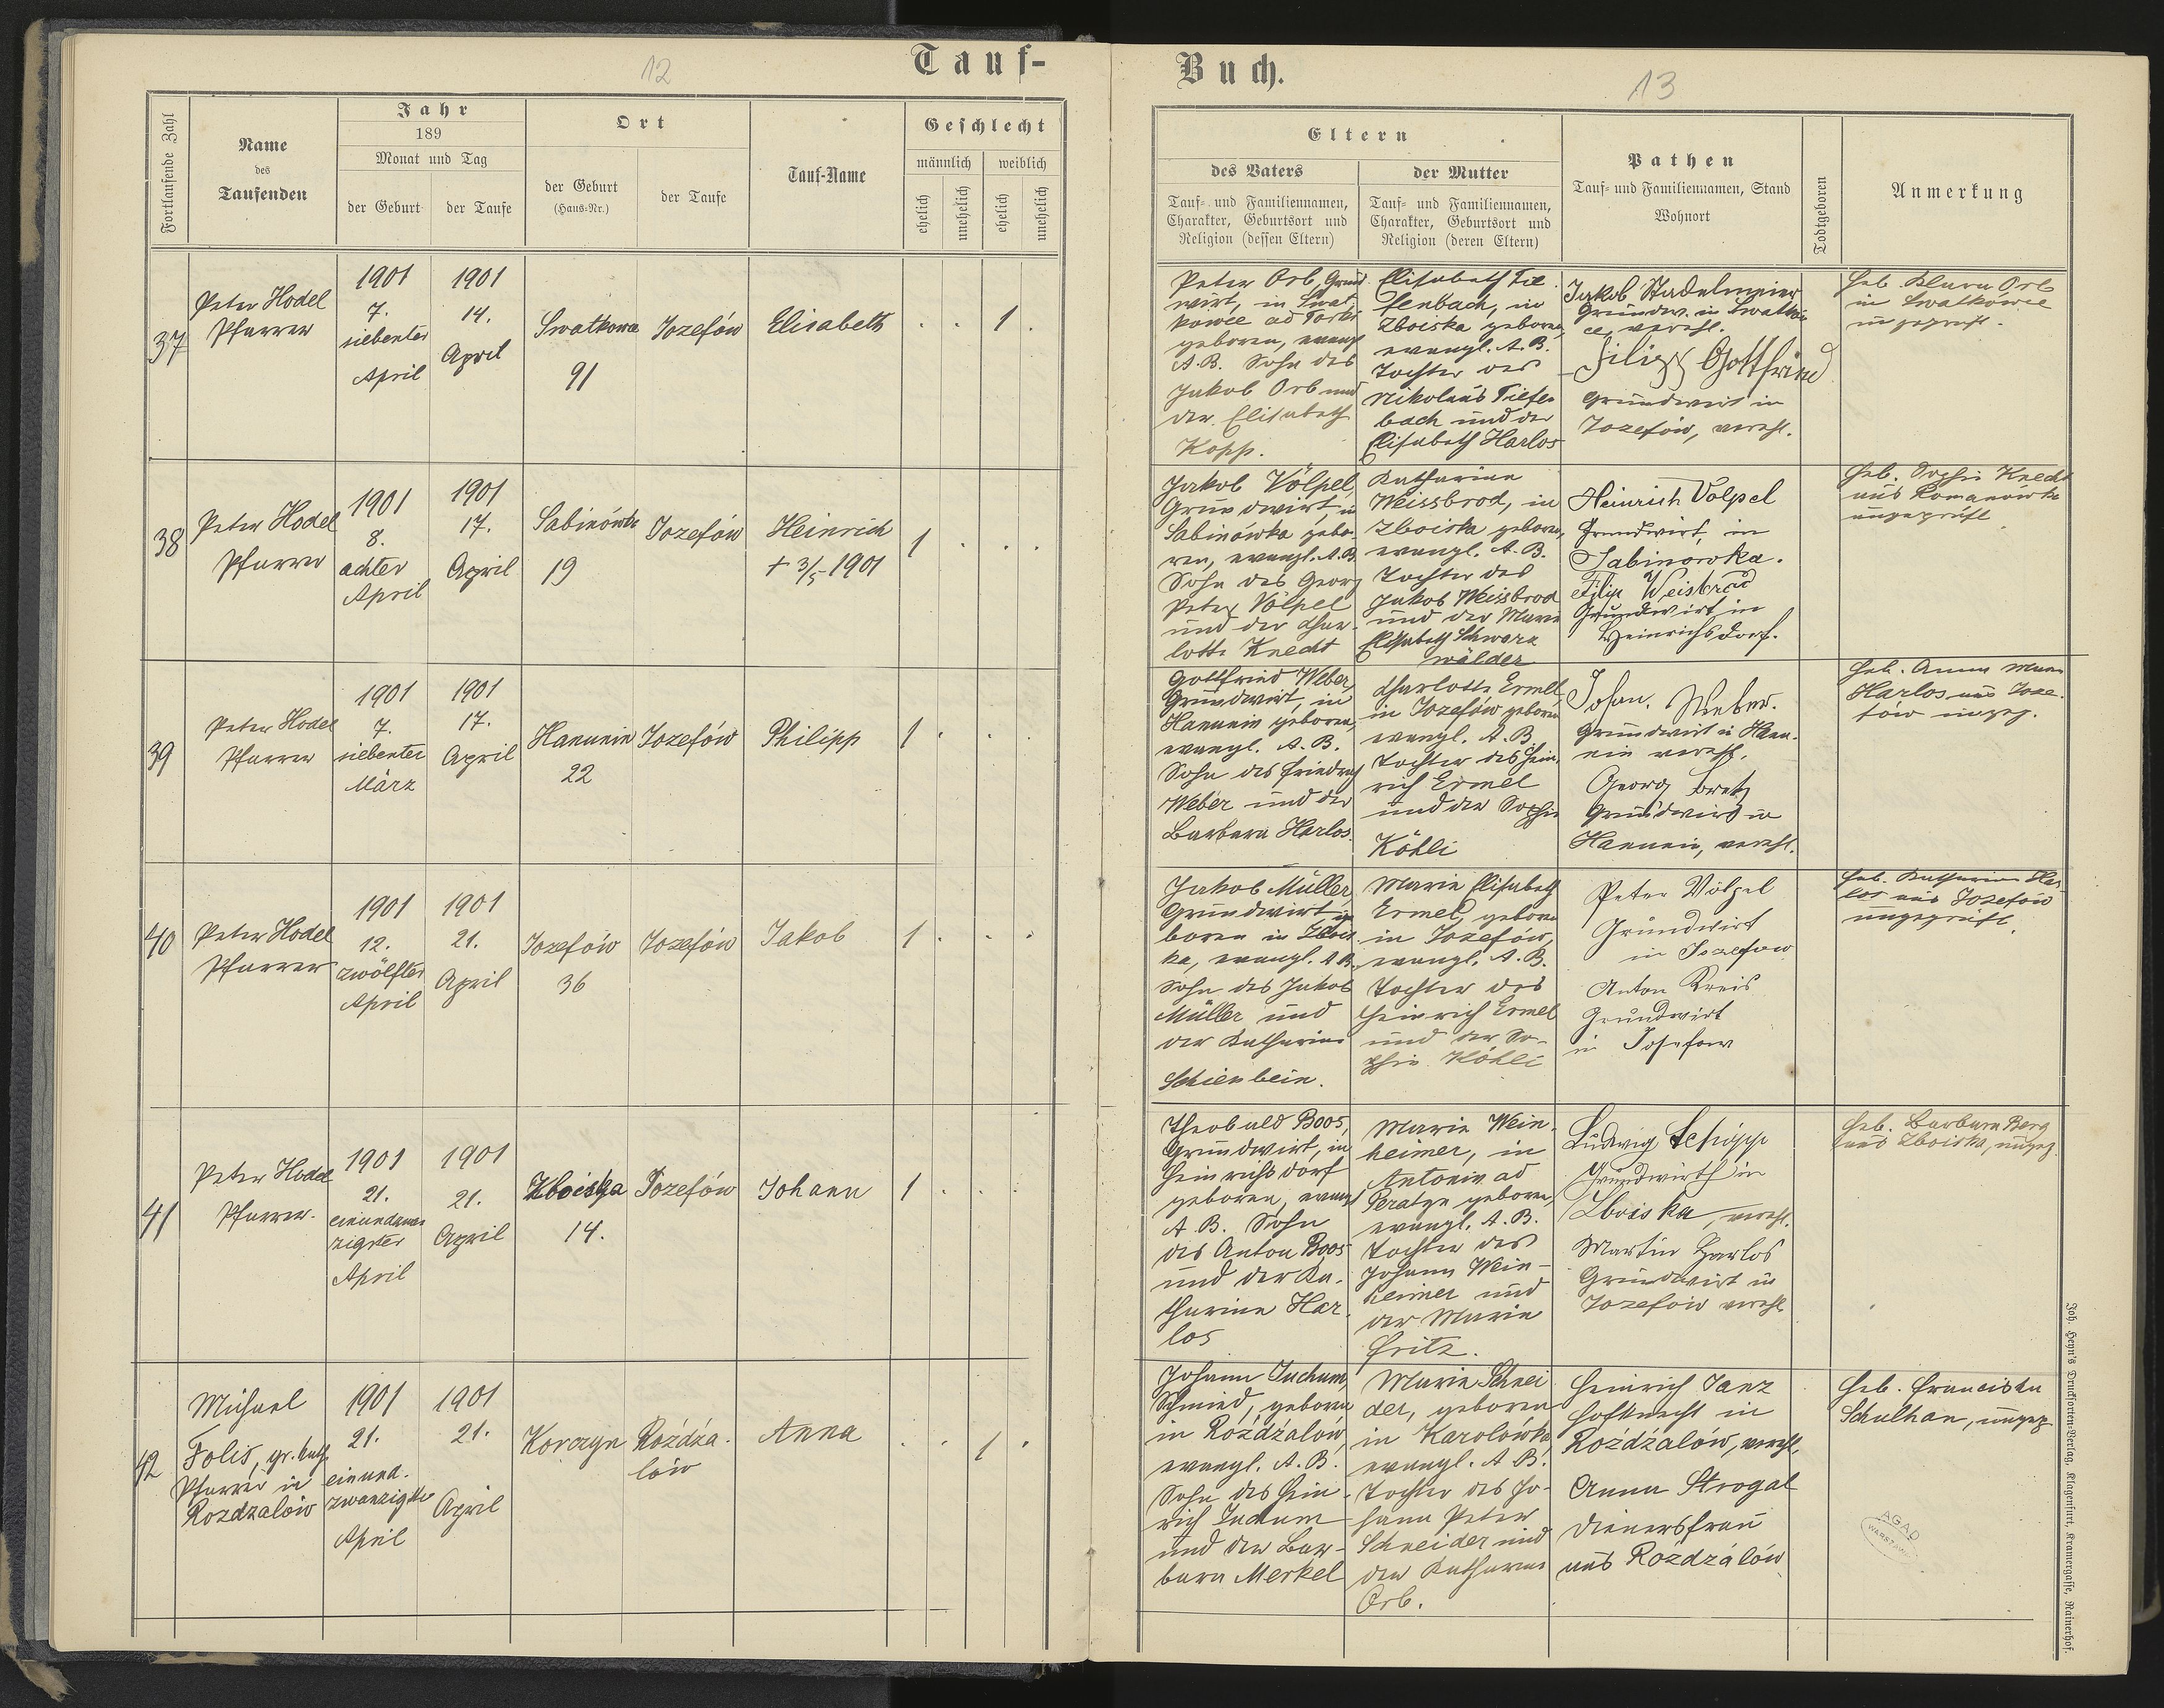 12
Tauf-
Fortlaufende Zahl
Name
des
Taufenden
Jahr
189
Monat und Tag
der Geburt
der Taufe
Ort
der Geburt
(Haus-Nr.)
der Taufe
Tauf-Name
Geschlecht
männlich
weiblich
ehelich
unehelich
ehelich
unehelich
37
Peter Hodel
Pfarrer
1901
7.
siebenter
April
1901
14.
April
Swatkowce
91
Jozefów
Elisabeth
1
38
Peter Hodel
Pfarrer
1901
8.
achter
April
1901
17.
April
Sabinówka
19
Jozefów
Heinrich
+ 3/5 1901
1
39
Peter Hodel
Pfarrer
1901
7.
siebenter
März
1901
17.
April
Hanunin
22
Jozefów
Philipp
1
40
Peter Hodel
Pfarrer
1901
12.
zwölfter
April
1901
21.
April
Jozefów
36
Jozefów
Jakob
1
41
Peter Hodel
Pfarrer.
1901
21.
einundzwan
zigster
April
1901
21.
April
Zboiska
14.
Jozefów
Johann
1
42
Michael
Folis, gr. kath.
Pfarrer in
Rozdzalów
1901
21.
einund.
zwanzigste
April
1901
21.
April
Korczyn
Rozdza.
lów
Anna
1
Buch.
13
Eltern
des Vaters
Tauf- und Familiennamen,
Charakter, Geburtsort und
Religion (dessen Eltern)
der Mutter
Tauf- und Familiennamen,
Charakter, Geburtsort und
Religion (deren Eltern)
Pathen
Tauf- und Familiennamen, Stand
Wohnort
Todtgeboren
Anmerkung
Peter Orb, Grund
wirt, in Swat
kowce ad Torki
geboren, evangl
A.B. Sohn des
Jakob Orb und
der Elisabeth
Kopp.
Elisabeth Tie
fenbach, in
Zboiska geboren,
evangl. A.B.
Tochter des
Nikolaus Tiefen
bach und der
Elisabeth Harlos
Jakob Stadelmeier
Grundw. in Swatkow
ce, vereh.
Filipp Gottfried
Grundwirt in
Jozefów, vereh.
Heb. Klara Orb
in Swatkowce
ungeprüft.
Jakob Völpel,
Grundwirt, in
Sabinówka gebo-
ren, evangl. A.B.
Sohn des Georg
Peter Völpel
und der Char-
lotte Knecht
Katharina
Weissbrod, in
Zboiska geboren,
evangl. A.B.
Tochter des
Jakob Weissbrod
und der Maria
Elisabeth Schwarz
wälder
Heinrich Völpel
Grundwirt, in
Sabinowka.
Filip Weisbrod
Grundwirt in
Heinrichsdorf.
Heb. Sophie Knecht
aus Romanówka
ungeprüft
Gottfried Weber,
Grundwirt, in
Hanunin geboren,
evangl. A.B.
Sohn des Friedrich
Weber und der
Barbara Harlos.
Charlotte Ermel,
in Jozefów geboren
evangl. A.B.
Tochter des Hein.
rich Ermel
und der Sophie
Köhli
Johan. Weber.
Grundwirt in Hanu.
nin vereh.
Georg Bretz
Grundwirt in
Hanunin, vereh.
Heb. Anna Maria
Harlos aus Joze.
fów ungep.
Jakob Müller,
Grundwirt, ge
boren in Zbois
ka, evangl. A.B.
Sohn des Jakob
Müller und
der Katharina
Schienbein.
Maria Elisabeth
Ermel, geboren
in Jozefów,
evangl. A.B.
Tochter des
Heinrich Ermel
und der So-
phie Köhli
Peter Völpel
Grundwirt
in Jozefow
Anton Kreis
Grundwirt
in Josefow
Heb. Katharina Har
los aus Jozefów
ungeprüft.
Theobald Boos,
Grundwirt, in
Heinrichsdorf
geboren, evangl
A.B. Sohn
des Anton Boos
und der Ka-
tharina Har.
los
Maria Wein-
heimer, in
Antonin ad
Peratyn geboren,
evangl. A.B.
Tochter des
Johann Wein-
heimer und
der Maria
Fritz.
Ludwig Schöpp
Grundwirth in
Zboiska, vereh.
Martin Harlos
Grundwirt in
Jozefów vereh
Heb. Barbara Berg
aus Zboiska, ungep.
Johann Juchum,
Schmied, geboren
in Rozdzalów,
evangl. A.B.
Sohn des Hein-
rich Juchum
und der Bar-
bara Merkel
Maria Schnei
der, geboren
in Karolówka,
evangl. A.B.
Tochter des Jo-
hann Peter
Schneider und
der Katharina
Orb.
Heinrich Janz
Hofknecht in
Rozdzalów, vereh.
Anna Strogal
Dienersfrau
aus Rozdzalów
Heb. Franciska
Schulhan, ungep
AGAD
WARSZAWA
Joh. Heyn's Drucksorten-Verlag, Klagenfurt, Kramergasse, Rainerhof.